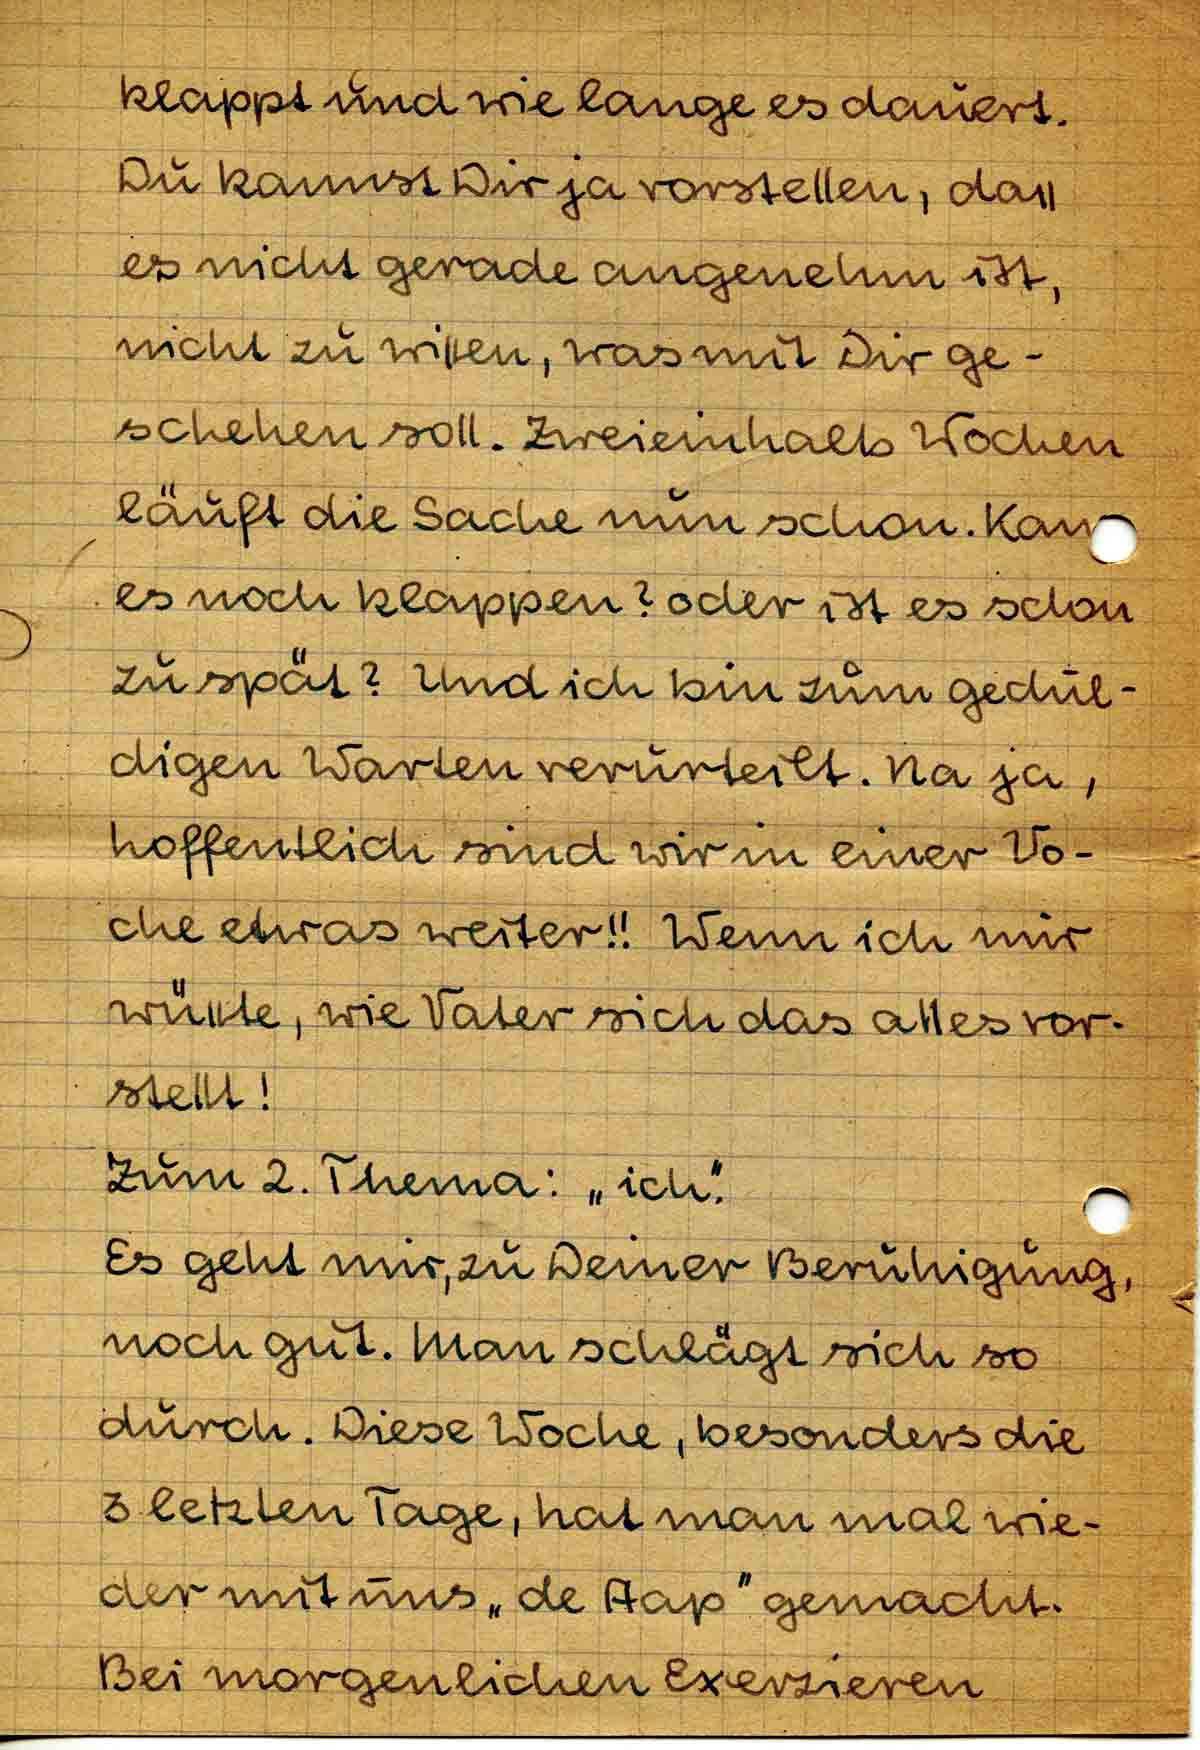 klappt und wie lange es dauert.
Du kannst Dir ja vorstellen, daß
es nicht gerade angenehm ist,
nicht zu wissen, was mit Dir ge-
schehen soll. Zweieinhalb Wochen
läuft die Sache nun schon. Kann
es noch klappen? oder ist es schon
zu spät? Und ich bin zum gedul-
digen Warten verurteilt. Na ja,
hoffentlich sind wir in einer Wo-
che etwas weiter!! Wenn ich nur
wüßte, wie Vater sich das alles vor-
stellt!
Zum 2. Thema: „ich".
Es geht mir, zu Deiner Beruhigung,
noch gut. Man schlägt sich so
durch. Diese Woche, besonders die
3 letzten Tage, hat man mal wie-
der mit uns „de Aap" gemacht.
Bei morgenlichen Exerzieren